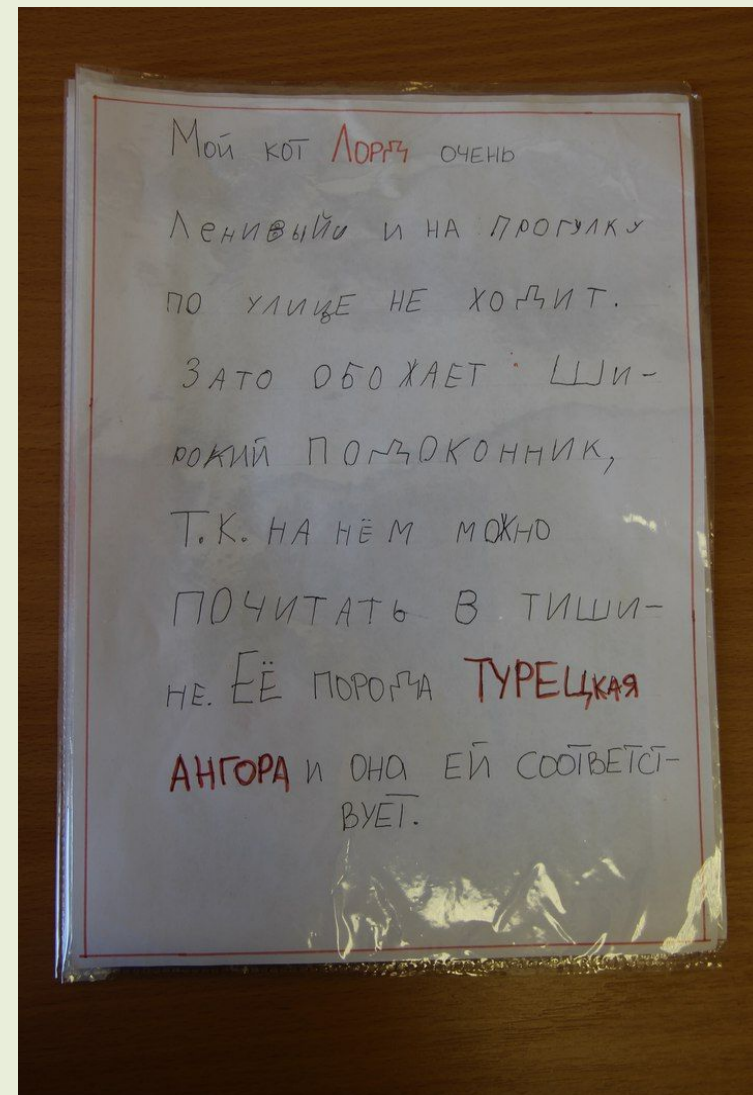 Мой кот Лорд очень
Ленивый и на прогулку
по улице не ходит.
Зато обожает Ши-
рокий подоконник,
Т.К. на нём можно
почитать в тиши-
не. Её порода ТУРЕЦКАЯ
АНГОРА и она ей соответст-
вует.